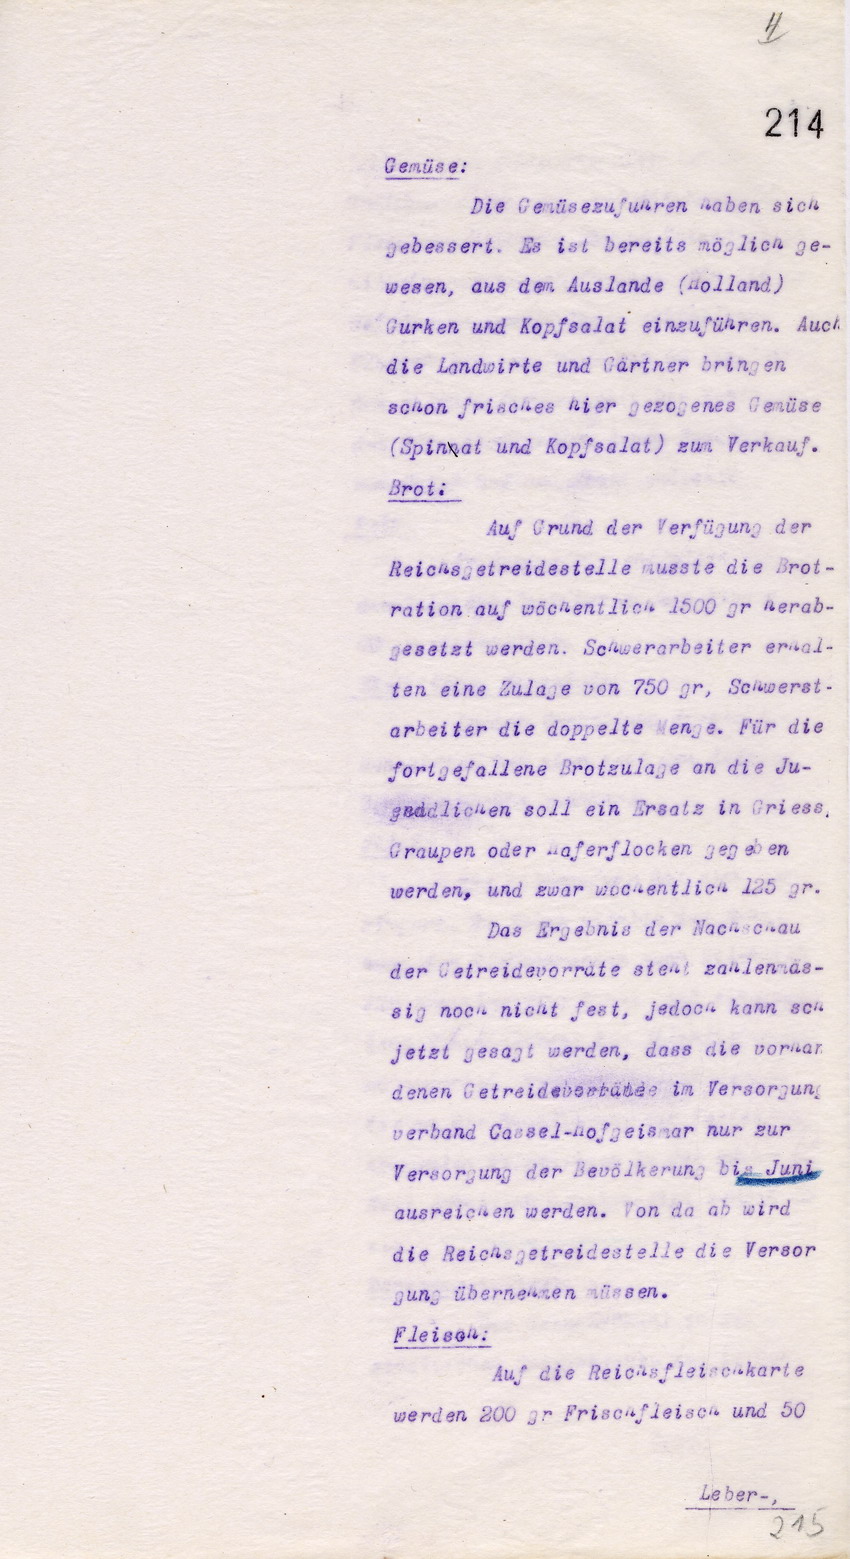 4
214
Gemüse:
Die Gemüsezufuhren haben sich
gebessert. Es ist bereits möglich ge-
wesen, aus dem Auslande (Holland)
Gurken und Kopfsalat einzuführen. Auch
die Landwirte und Gärtner bringen
schon frisches hier gezogenes Gemüse
(Spinnat und Kopfsalat) zum Verkauf.
Brot:
Auf Grund der Verfügung der
Reichsgetreidestelle musste die Brot-
ration auf wöchentlich 1500 gr herab-
gesetzt werden. Schwerarbeiter erhal-
ten eine Zulage von 750 gr, Schwerst-
arbeiter die doppelte Menge. Für die
fortgefallene Brotzulage an die Ju-
gendlichen soll ein Ersatz in Griess,
Graupen oder Haferflocken gegeben
werden, und zwar wöchentlich 125 gr.
Das Ergebnis der Nachschau
der Getreidevorräte steht zahlenmäs-
sig noch nicht fest, jedoch kann sch
jetzt gesagt werden, dass die vorhan
denen Getreidebestände im Versorgung
verband Cassel-Hofgeismar nur zur
Versorgung der Bevölkerung bis Juni
ausreichen werden. Von da ab wird
die Reichsgetreidestelle die Versor
gung übernehmen müssen.
Fleisch:
Auf die Reichsfleischkarte
werden 200 gr Frischfleisch und 50
Leber-,
215